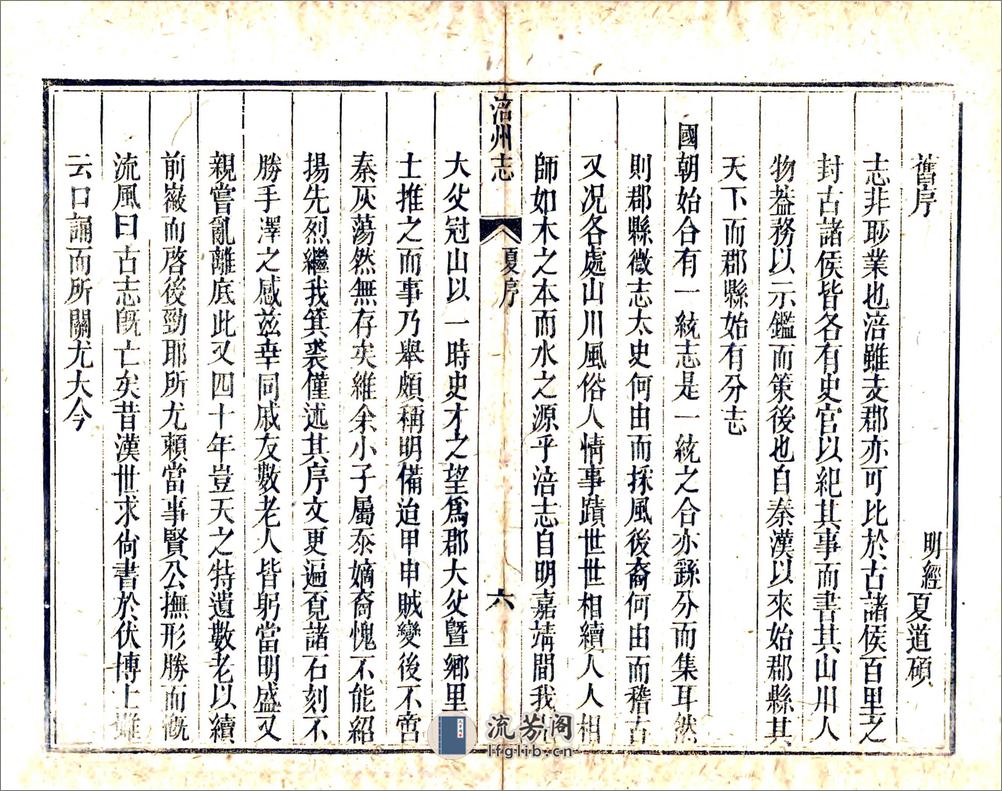 舊序
明經夏道碩
志非耴業也涪雖支郡亦可比於古諸侯百里之
封古諸侯皆各有史官以紀其事而書其山川人
物葢務以示鑑而策後也自秦漢以來始郡縣其
天下而郡縣始有分志
國朝始合有一統志是一統之合亦繇分而集耳然
則郡縣徵志太史何由而採風後裔何由而稽古
又况各處山川風俗人情事蹟世世相續人人相
師如木之本而水之源乎涪志自明嘉靖間我
涪州志
夏序
六
大父冠山以一時史才之望為郡大父曁鄉里
士推之而事乃舉頗稱明備迨甲申賊變後不啻
秦灰蕩然無存矣維余小子屬忝嫡裔愧不能紹
揚先烈繼我箕裘僅述其序文更遍覓諸石刻不
勝手澤之感兹幸同戚友數老人皆躬當明盛又
親嘗亂離底此又四十年豈天之特遺數老以續
前嶶而啓後勁耶所尤賴當事賢公撫形勝而慨
流風曰古志旣亡矣昔漢世求尚書於伏博士雖
云口誦而所關尤大今
流芳阁
lfglib.cn